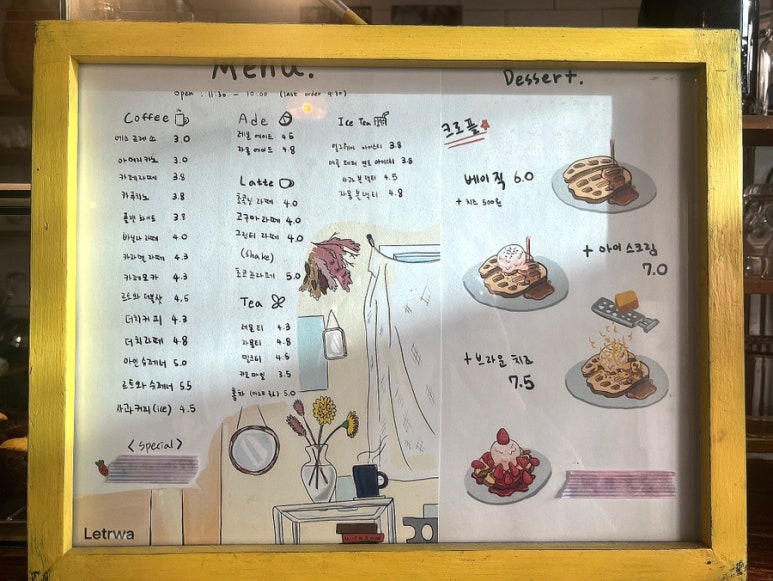 Menu.
open : 11:30 - 10:00 (last order 9:30)
Coffee
에스프레소 3.0
아메리카노 3.0
카페라떼 3.8
카푸치노 3.8
플랫 화이트 3.8
바닐라 라떼 4.0
카라멜 라떼 4.3
카페모카 4.3
4.5
더치커피 4.3
더치라떼 4.8
아인슈페너 5.0
슈페너 5.5
사과커피(ice) 4.5
<special>
Ade
레몬 에이드 4.5
자몽 에이드 4.8
Latte
초코 라떼 4.0
고구마 라떼 4.0
그린티 라떼 4.0
(shake)
5.0
Tea
레몬티 4.3
자몽티 4.8
민트티 4.5
카모마일 3.5
5.0
Ice Tea
아이스티 3.8
아이스티 3.8
사과 블랙티 4.5
자몽 블랙티 4.8
Dessert.
크로플
베이직 6.0
+ 치즈 500원
+ 아이스크림
7.0
+ 브라운 치즈
7.5
Letrwa